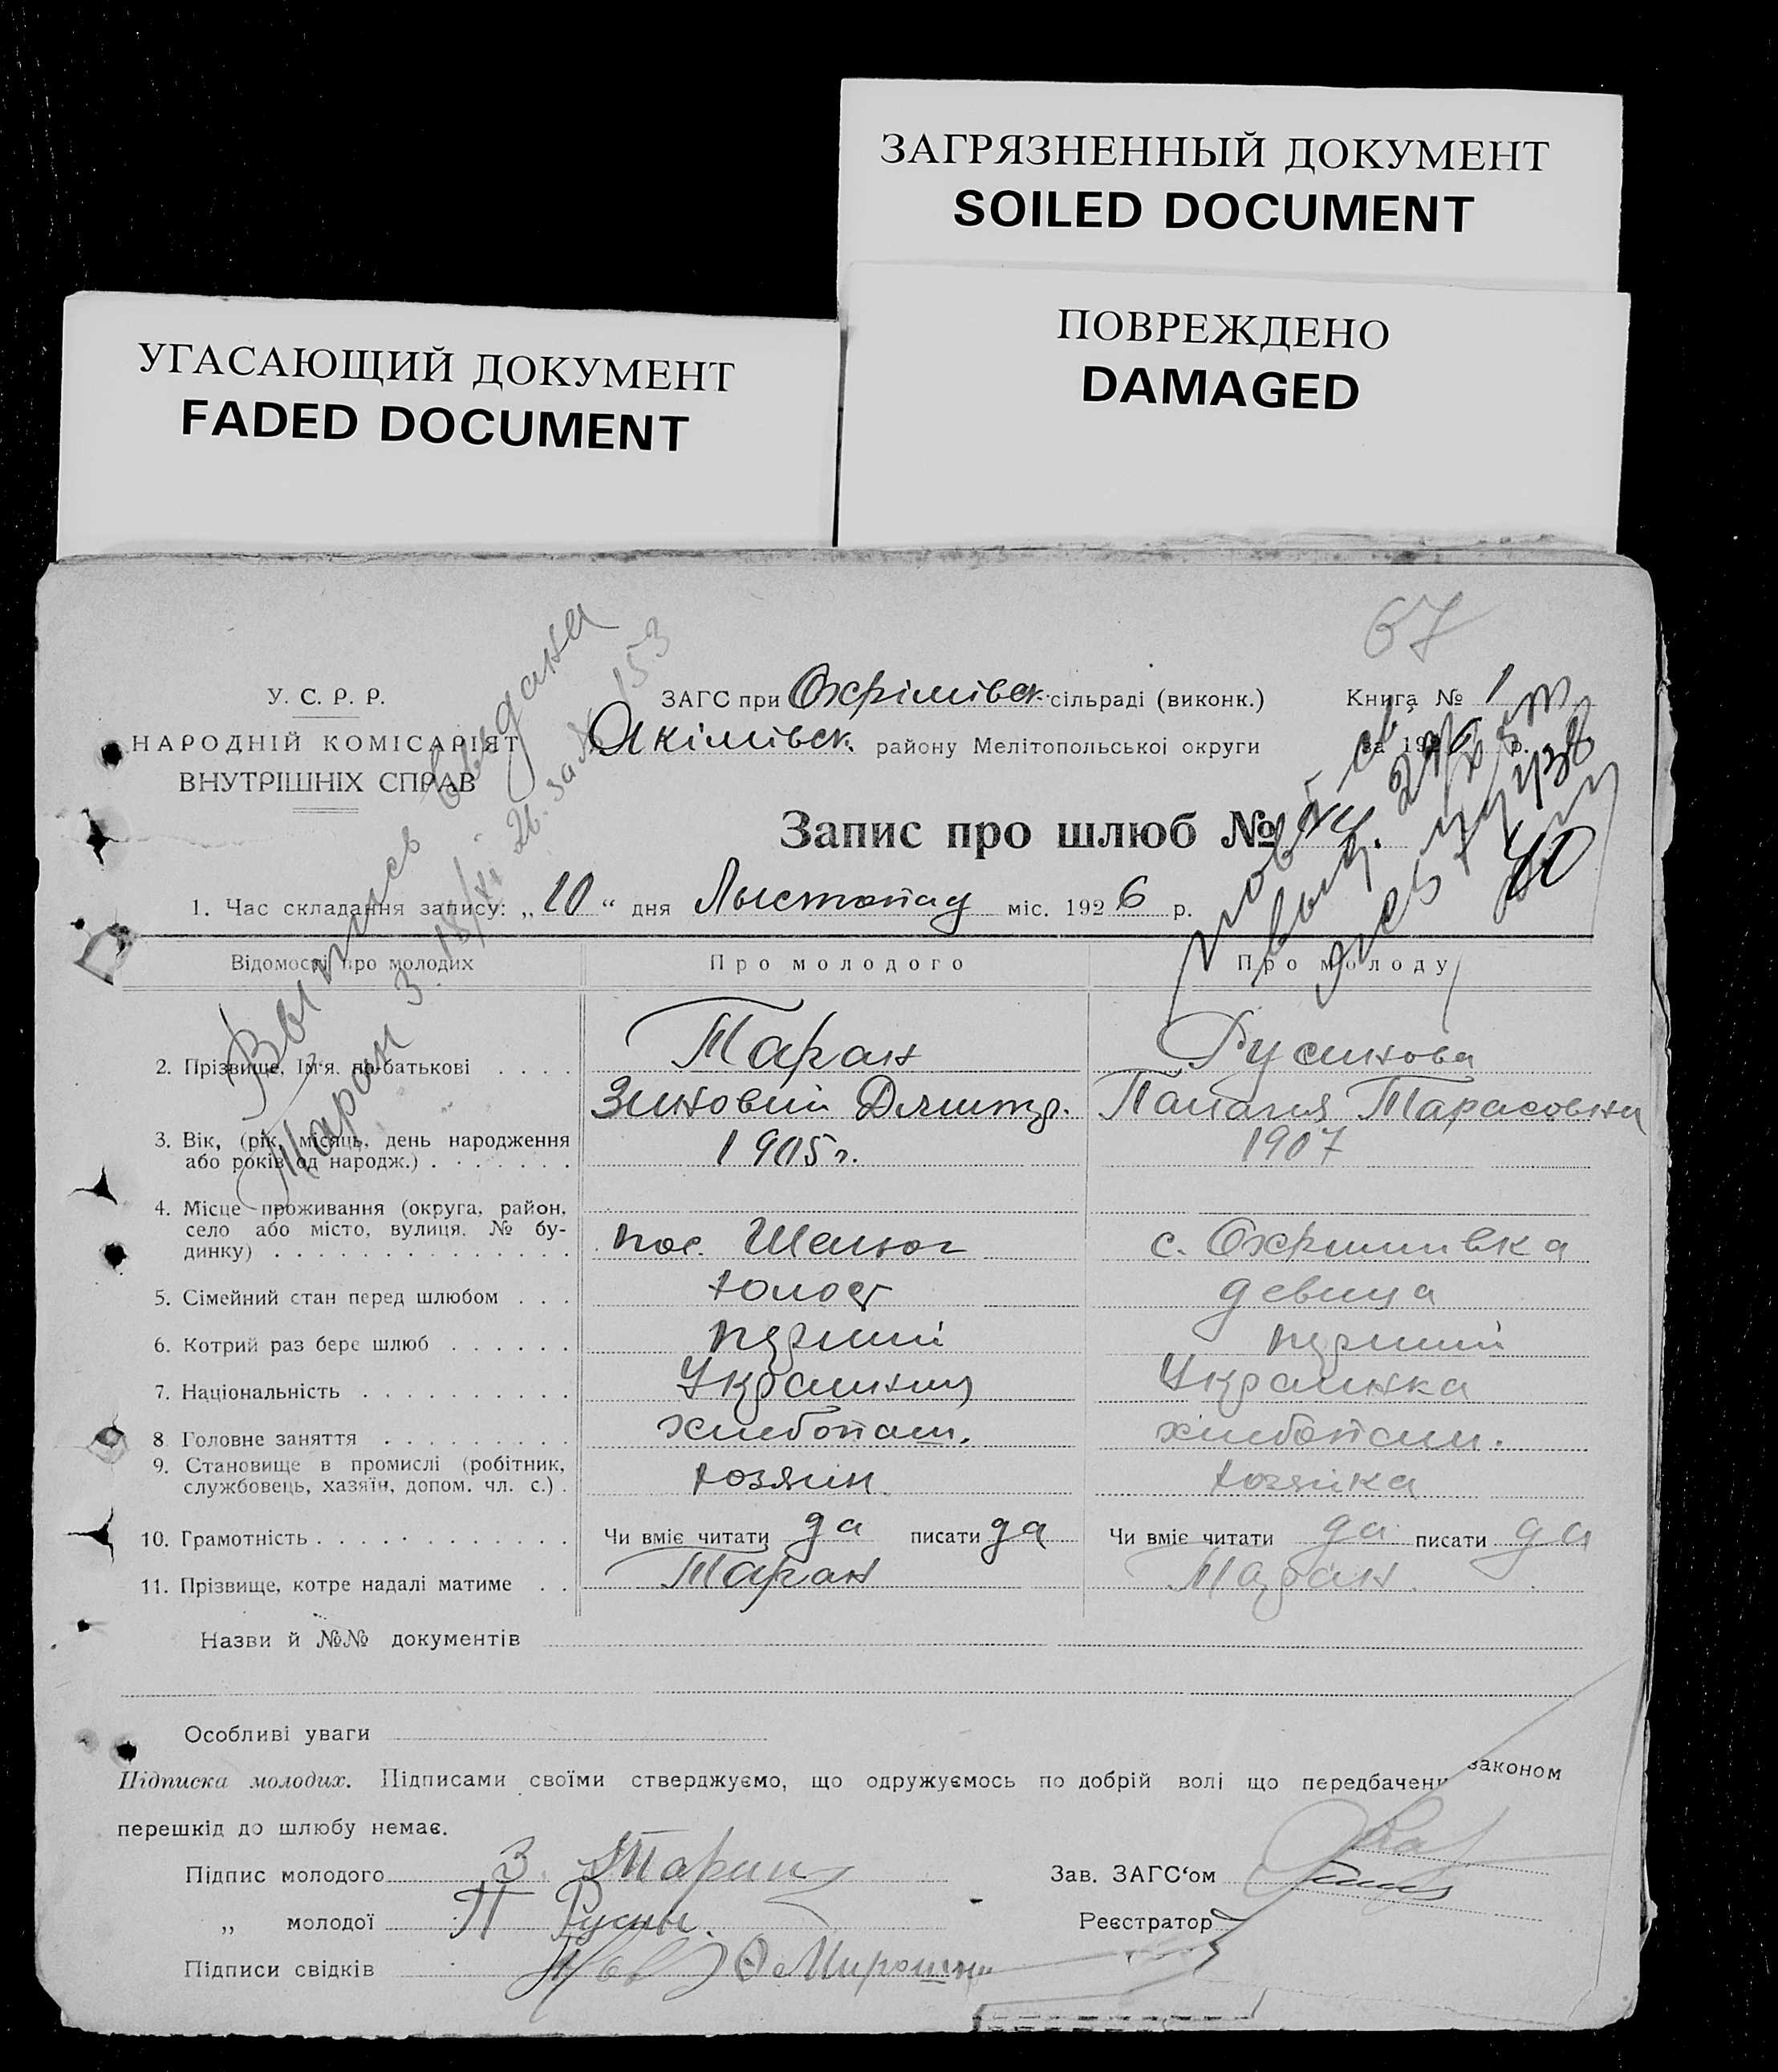 ЗАГРЯЗНЕННЫЙ ДОКУМЕНТ
SOILED DOCUMENT
ПОВРЕЖДЕНО
DAMAGED
УГАСАЮЩИЙ ДОКУМЕНТ
FADED DOCUMENT
67
У. С. Р. Р.
НАРОДНІЙ КОМІСАРІЯТ
ВНУТРІШНІХ СПРАВ
ЗАГС при Охрімівск. сільраді (виконк.)
Книга № 1
Якімівск. району Мелітопольської округи
за 1926 р.
Запис про шлюб №
1. Час складання запису: „10“ дня Лыстопад міс. 1926 р.
Выпись выдана
Таран З. 18/XI 26. за № 153
Відомості про молодих Про молодого Про молоду
2. Прізвище, Ім'я. по-батькові . . . . Таран Русинова
Зиновий Дмитр. Палагия Тарасовна
3. Вік, (рік, місяць, день народження
або років од народж.) . . . . . . . 1905 г. 1907
4. Місце проживання (округа, район,
село або місто, вулиця. № бу-
динку) . . . . . . . . . . . . . . пос. Шелюг с. Охримивка
5. Сімейний стан перед шлюбом . . . холост девица
6. Котрий раз бере шлюб . . . . . . перший перший
7. Національність . . . . . . . . . . Украинец Украинка
8 Головне заняття . . . . . . . . . хлебопаш. хлебопаш.
9. Становище в промислі (робітник,
службовець, хазяїн, допом. чл. с.) . хозяин. хозяйка
10. Грамотність . . . . . . . . . . . . Чи вміє читати да писати да Чи вміє читати да писати да
11. Прізвище, котре надалі матиме . . Таран Таран.
Назви й №№ документів
Особливі уваги
Підписка молодих. Підписами своїми стверджуємо, що одружуємось по добрій волі що передбачени законом
перешкід до шлюбу немає.
Підпис молодого З. Таран
Зав. ЗАГС‘ом
„ молодої П Русин.
Реєстратор
Підписи свідків Мирошни